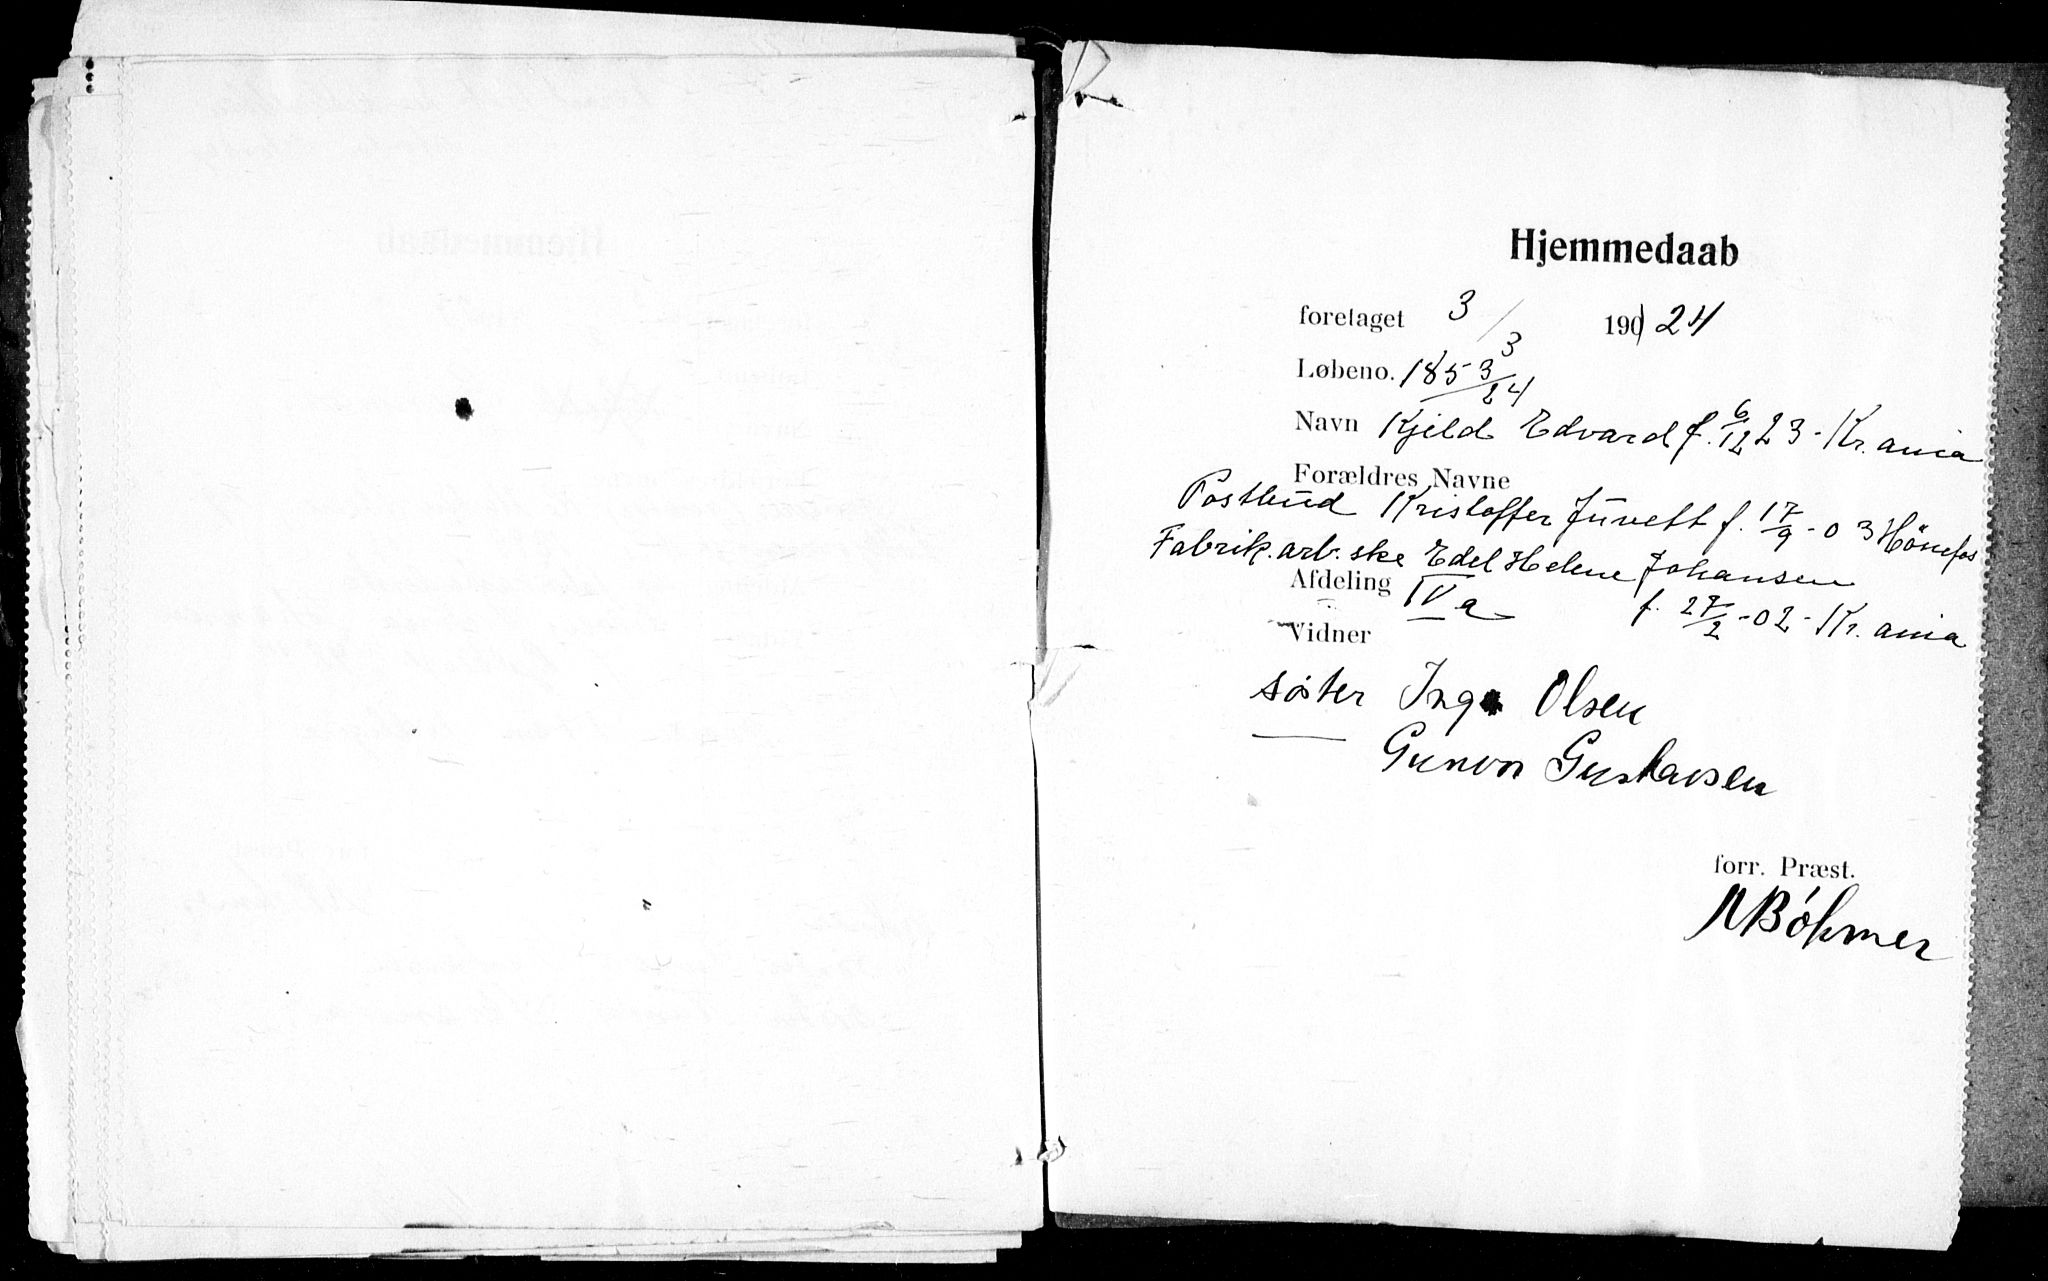 Hjemmedaab
foretaget 3/3 190 24
Løbeno. 1853 3/24
Navn Kjeld Edvard f. 6/12 23 - Kr.ania
Forældres Navne
Postbud Kristoffer Juvett f. 17/9 - 03 Hönefos
Fabrik.arb.ske Edel Helene Johansen
Afdeling IV a f. 27/2 - 02 - Kr.ania
Vidner
søster Inga Olsen
Gunvor Gustavsen
forr. Præst.
Bøhmer